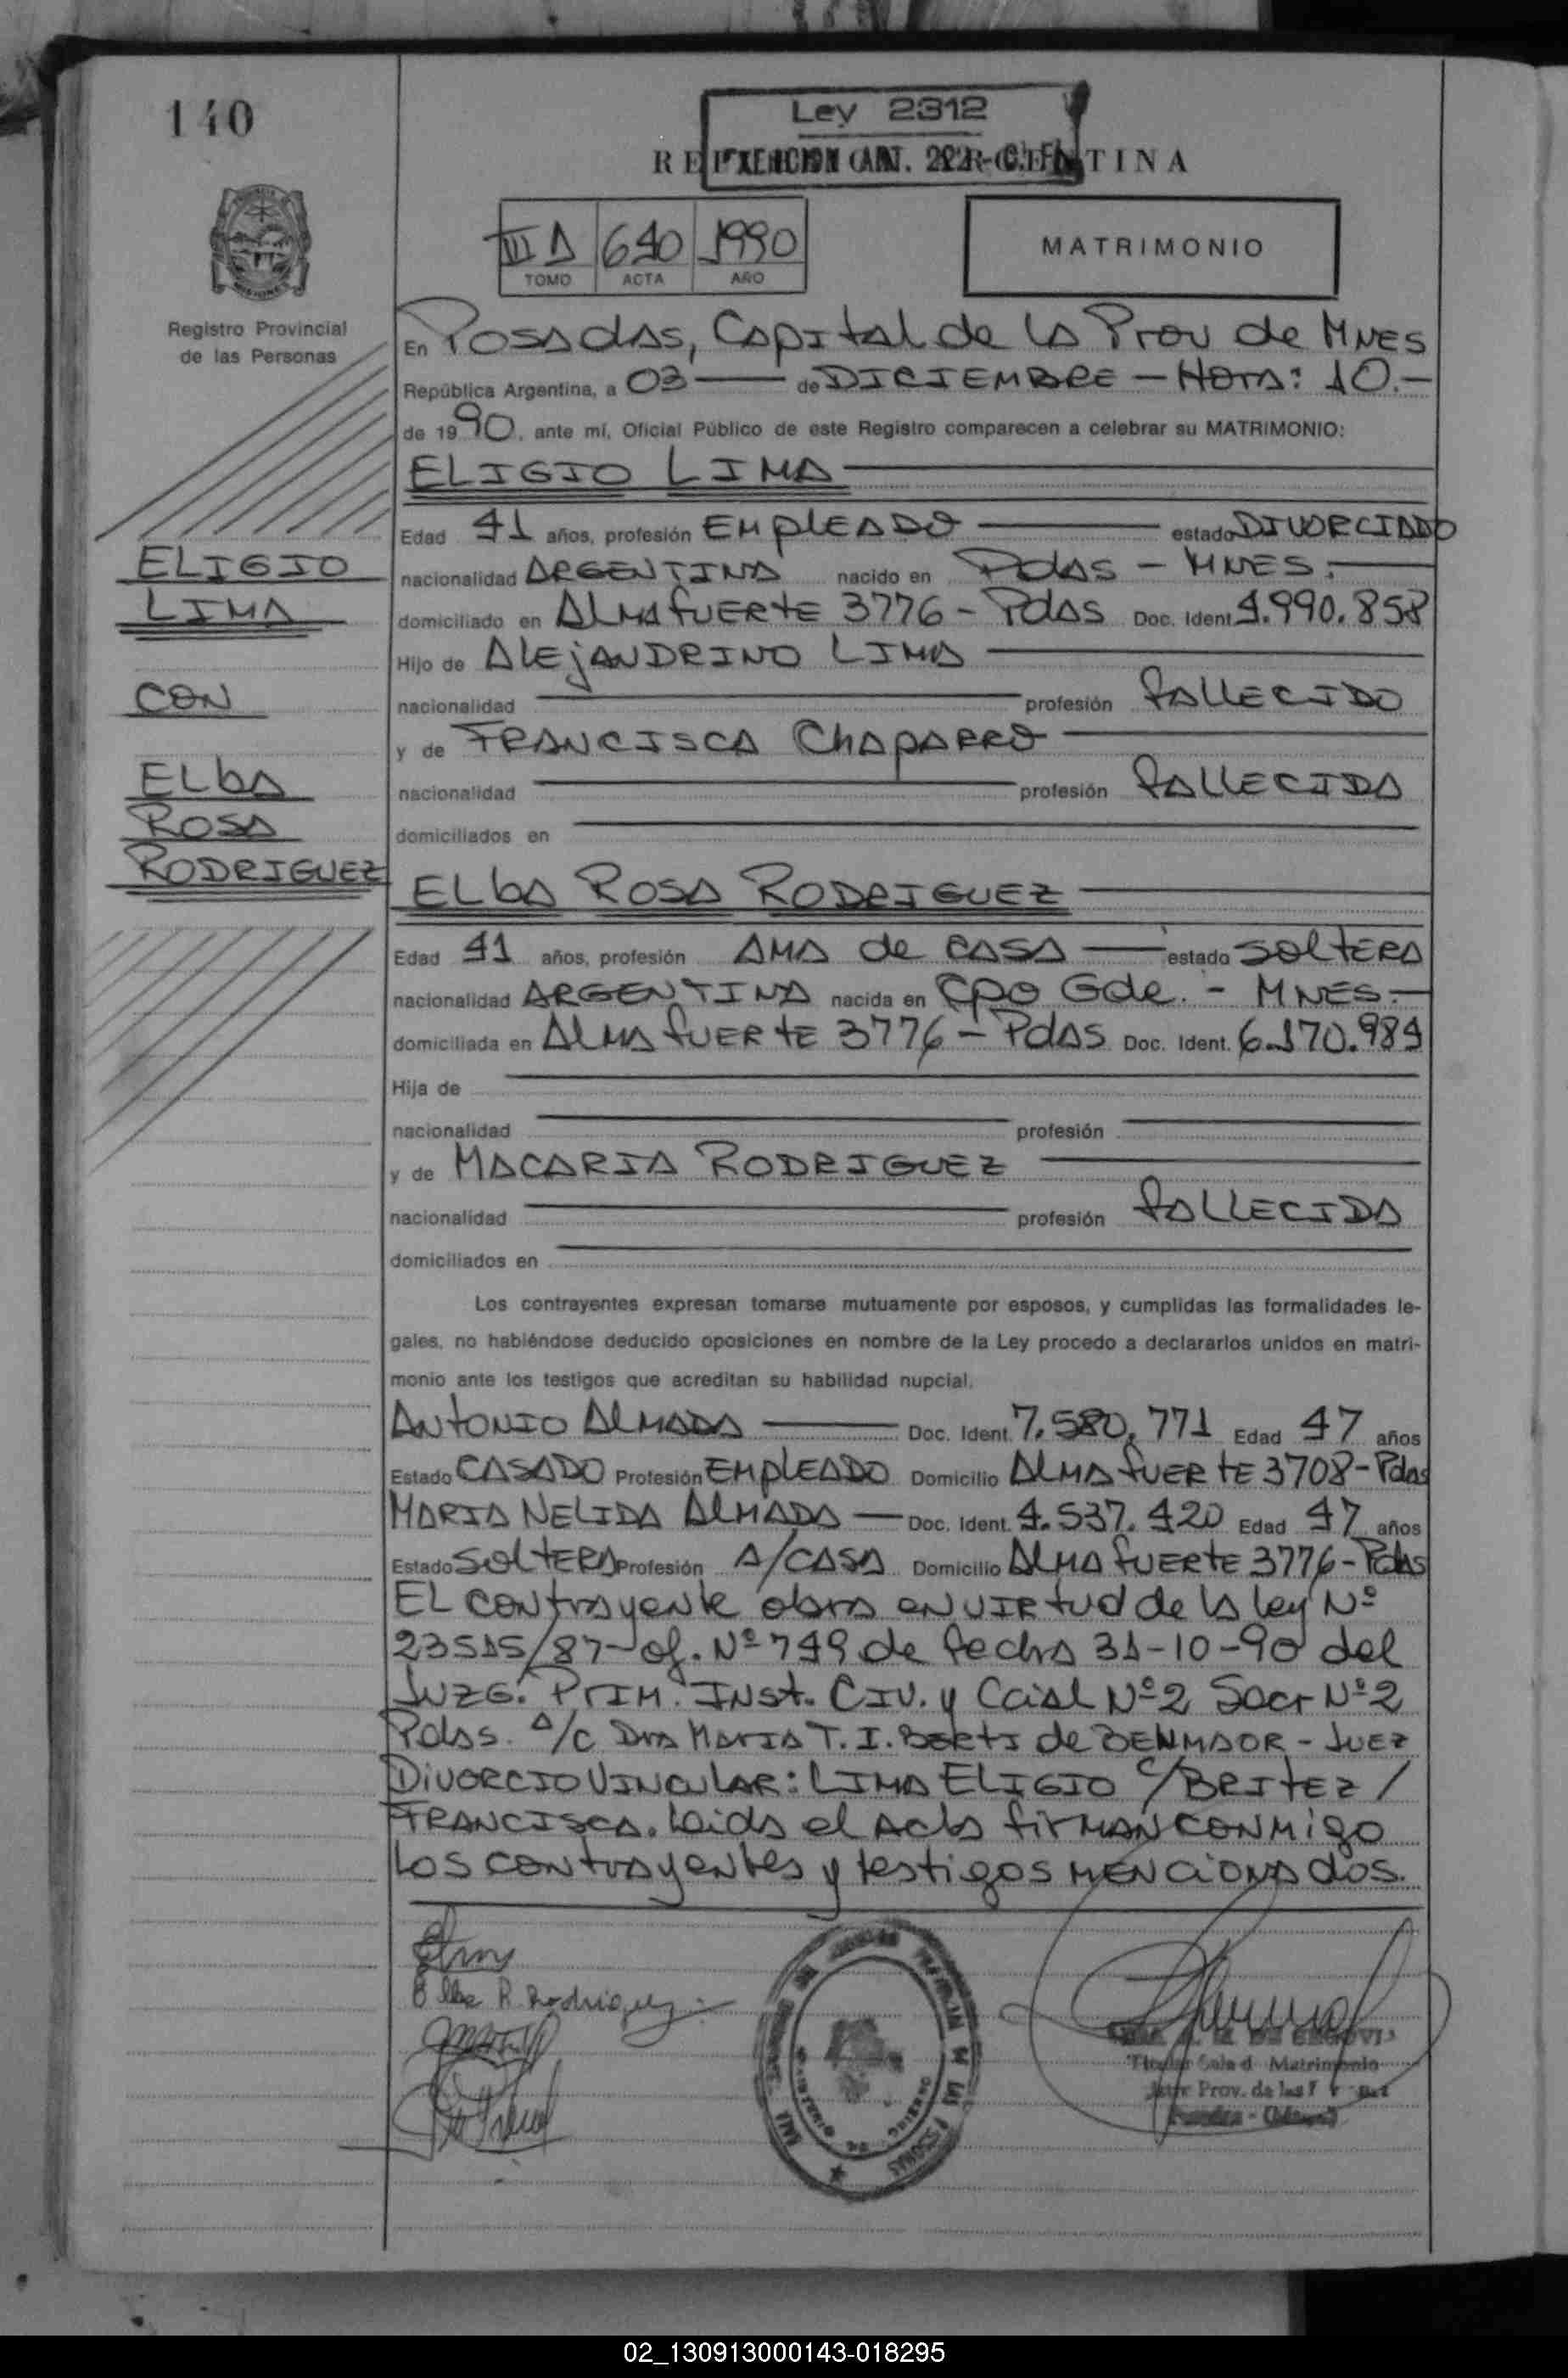 140
Ley 2312
REPUBLICA ARGENTINA
EXENCION (ART. 222 - C.F.)
III A 640 1990
TOMO ACTA AÑO
MATRIMONIO
Registro Provincial
de las Personas
En POSADAS, CAPITAL de LA Prov de MNES
República Argentina, a 03 — de DICIEMBRE — HORA: 10.—
de 1990, ante mí, Oficial Público de este Registro comparecen a celebrar su MATRIMONIO:
ELIGIO LIMA
Edad 41 años, profesión EMPLEADO estado DIVORCIADO
nacionalidad ARGENTINA nacido en PdAS - MNES.
domiciliado en ALMAFUERTE 3776 - PdAS Doc. Ident. 4.990.858
Hijo de ALEJANDRINO LIMA
nacionalidad profesión FALLECIDO
y de FRANCISCA CHAPARRO
nacionalidad profesión FALLECIDA
domiciliados en
ELIGIO
LIMA
CON
ELBA
ROSA
RODRIGUEZ
ELBA ROSA RODRIGUEZ
Edad 41 años, profesión AMA de CASA estado SOLTERA
nacionalidad ARGENTINA nacida en Cpo Gde. - MNES.-
domiciliada en ALMAFUERTE 3776 - PdAS Doc. Ident. 6.170.984
Hija de
nacionalidad profesión
y de MACARIA RODRIGUEZ
nacionalidad profesión FALLECIDA
domiciliados en
Los contrayentes expresan tomarse mutuamente por esposos, y cumplidas las formalidades le-
gales, no habiéndose deducido oposiciones en nombre de la Ley procedo a declararlos unidos en matri-
monio ante los testigos que acreditan su habilidad nupcial.
ANTONIO ALMADA Doc. Ident. 7.580.771 Edad 47 años
Estado CASADO Profesión EMPLEADO Domicilio ALMAFUERTE 3708 - Pdas
MARIA NELIDA ALMADA — Doc. Ident. 4.537.420 Edad 47 años
Estado SOLTERA Profesión A/CASA Domicilio ALMAFUERTE 3776 - PdAS
EL contrayente obra en virtud de la ley Nº
23515/87 - of. Nº 749 de fecha 31-10-90 del
JUZG. PRIM. INST. CIV. y Ccial Nº2 Secr Nº2
Pdas. A/C Dra MARIA T. I. de BENMAOR - JUEZ
DIVORCIO VINCULAR: LIMA ELIGIO C/ BRITEZ /
FRANCISCA. Leida el Acta firman conmigo
los contrayentes y testigos mencionados.
Elba R. Rodriguez
DE SEGOVIA
Titular Sala d Matrimonio
Prov. de las
02_130913000143-018295